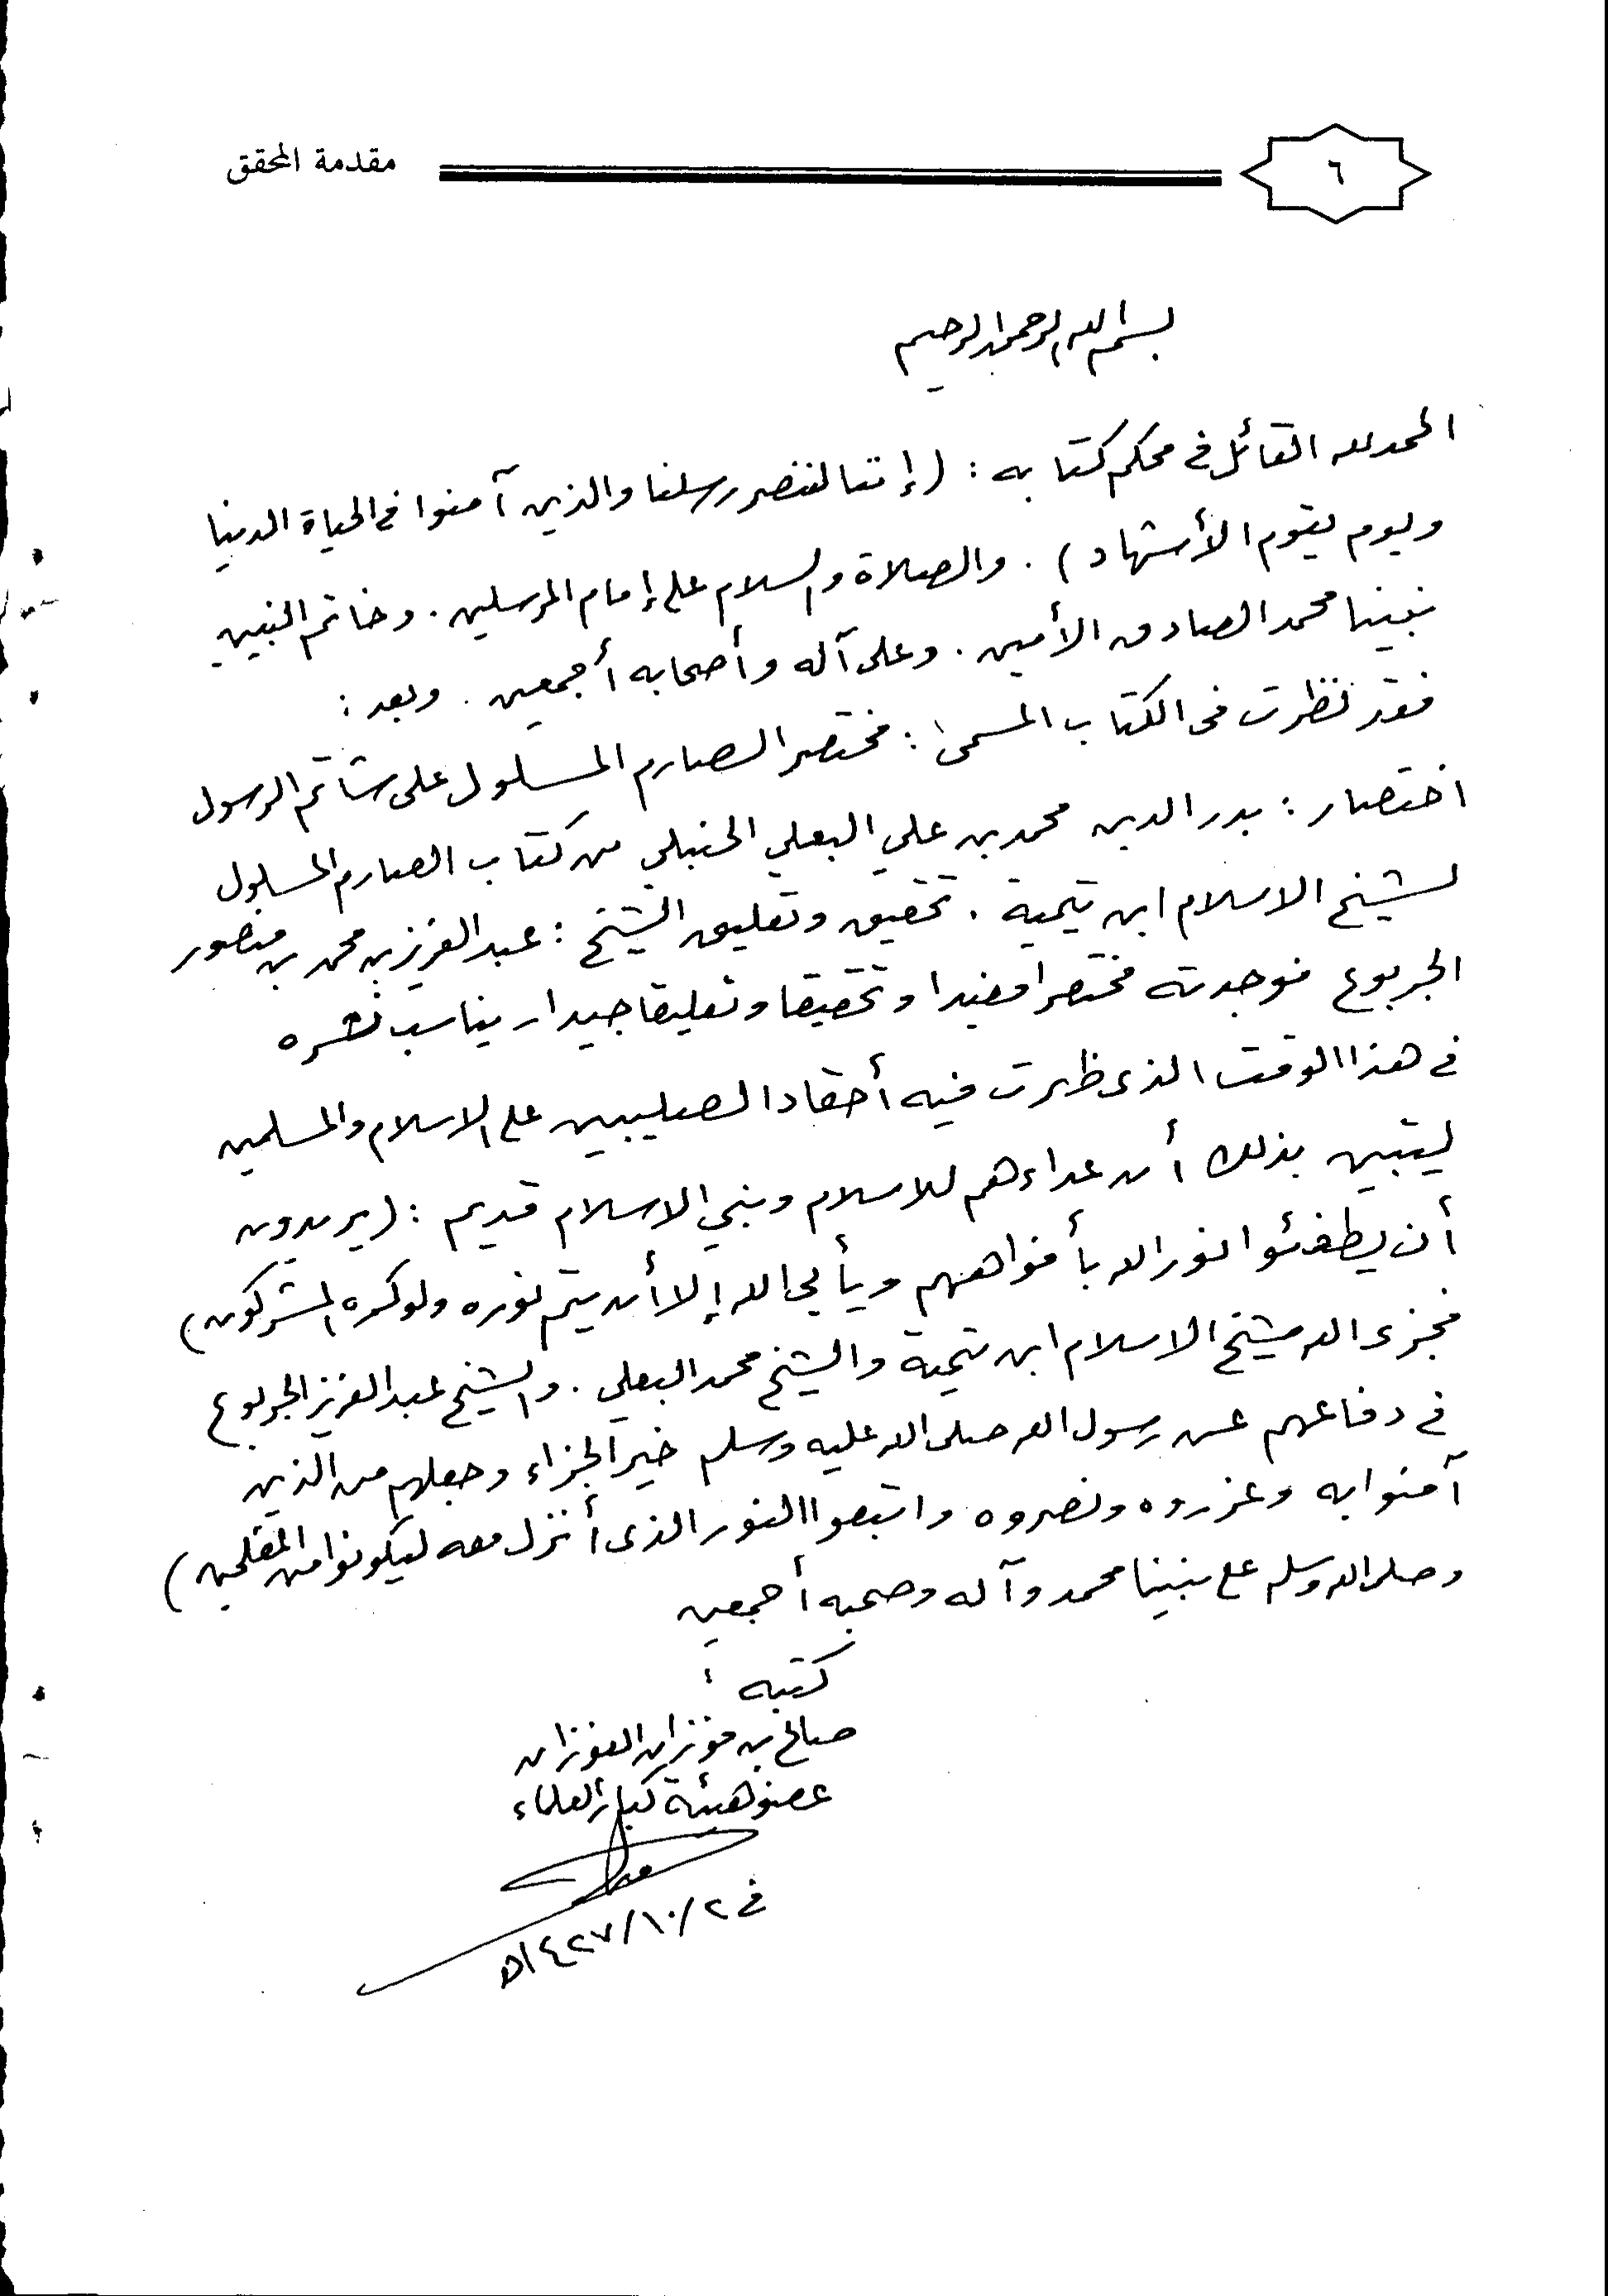 ٦
مقدمة المحقق
بسم الله الرحمن الرحيم
الحمد لله القائل في محكم كتابه : (إننا لننصر رسلنا والذين آمنوا في الحياة الدنيا
ويوم يقوم الأشهاد) . والصلاة والسلام على إمام المرسلين . وخاتم النبيين
نبينا محمد الصادق الأمين . وعلى آله وأصحابه أجمعين . وبعد :
فقد نظرت في الكتاب المسمى : مختصر الصارم المسلول على شاتم الرسول
اختصار : بدر الدين محمد بن علي البعلي الحنبلي من كتاب الصارم المسلول
لشيخ الاسلام ابن تيمية . تحقيق وتعليق الشيخ : عبد العزيز بن محمد بن منصور
الجربوع فوجدته مختصرا مفيدا وتحقيقا وتعليقا جيدا . يناسب نشره
في هذا الوقت الذى ظهرت فيه أحقاد الصليبيين على الاسلام والمسلمين
ليتبين بذلك أن عداءهم للاسلام ونبي الاسلام قديم : (يريدون
أن يطفئوا نور الله بأفواههم ويأبى الله إلا أن يتم نوره ولو كره المشركون)
فجزى الله شيخ الاسلام ابن تيمية والشيخ محمد البعلي . والشيخ عبد العزيز الجربوع
في دفاعهم عن رسول الله صلى الله عليه وسلم خير الجزاء وجعلهم من الذين
آمنوا به وعزروه ونصروه واتبعوا النور الذى أنزل معه ليكونوا من المفلحين)
وصلى الله وسلم على نبينا محمد وآله وصحبه أجمعين
كتبه :
صالح بن فوزان الفوزان
عضو هيئة كبار العلماء
في ٢/١٠/١٤٢٧هـ